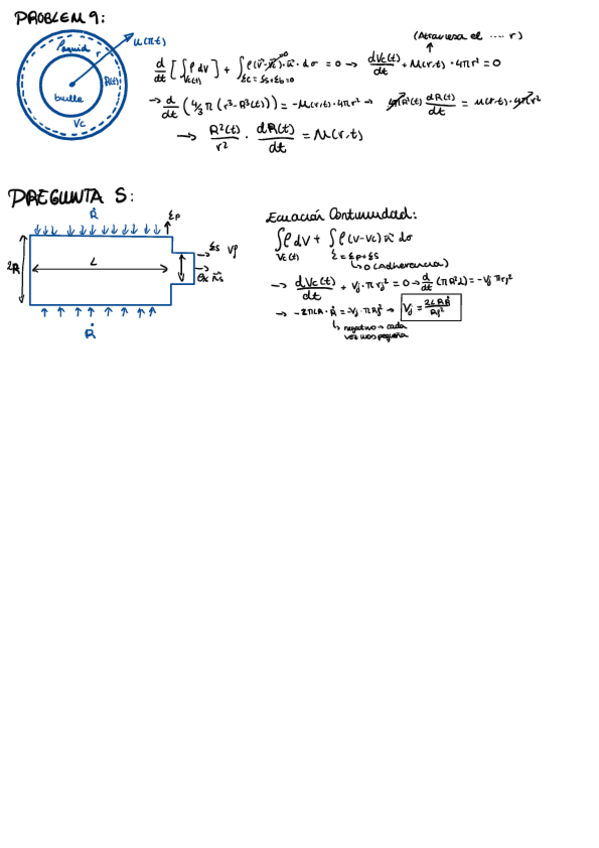 PROBLEM 9:
u(r,t)
liquid r
R(t)
bulle
Vc
(Atraviesa el .... r)
d/dt [∫Vc(t) ρ dV] + ∫Σc=Σs+Σb=0 ρ(v⃗-v⃗c)·n⃗·dσ = 0 → dVc(t)/dt + u(r,t)·4πr² = 0
→ d/dt (4/3 π (r³-R³(t))) = -u(r,t)·4πr² → 4πR²(t) dR(t)/dt = u(r,t)·4πr²
→ R²(t)/r² · dR(t)/dt = u(r,t)
PREGUNTA 5:
Ṙ
Σp
2R
L
Σs Vj
n⃗s
Ṙ
Ecuación Continuidad:
∫Vc(t) ρ dV + ∫Σ=Σp+Σs ρ(v-vc) n⃗ dσ
↳ 0 (Adherencia)
→ dVc(t)/dt + Vj·πrj² = 0 → d/dt (πR²L) = -Vj πrj²
→ -2πLR·Ṙ = -Vj·πRj² → Vj = 2LRṘ/Rj²
↳ negativo → cada
vez mas pequeña